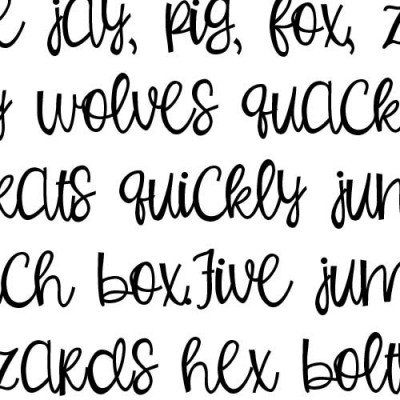 e jay, pig, fox, z
y wolves quack
eats quickly jum
ch box. Five jum
zards hex bolt